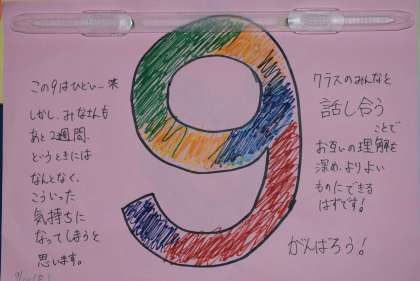 この9はひどい一味
しかし、みなさんも
あと2週間、
というときには
なんとなく、
こういった
気持ちに
なってしまうと
思います。
9
クラスのみんなと
話し合う
ことで
お互いの理解を
深め、よりよい
ものにできる
はずです!
がんばろう!